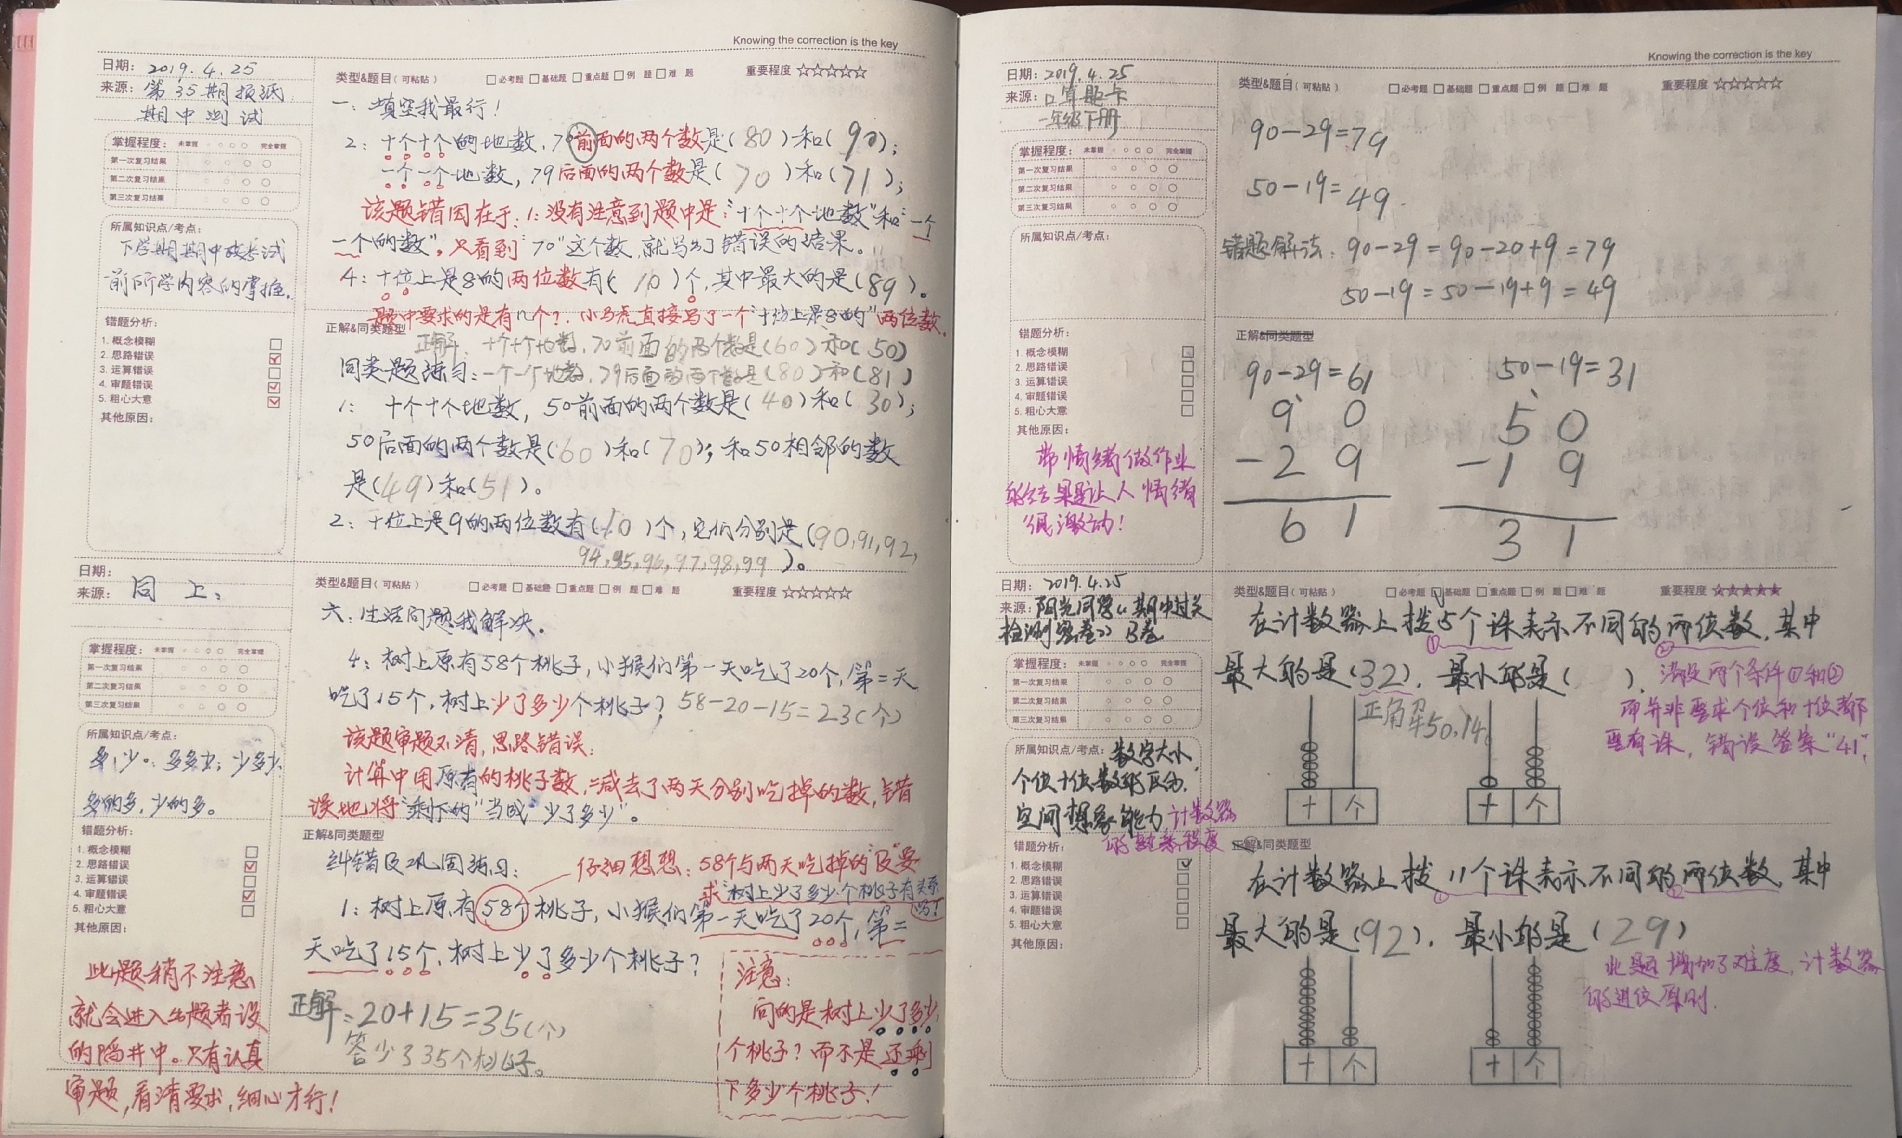 Knowing the correction is the key
日期: 2019.4.25
来源: 第35期报纸
期中测试
掌握程度: 未掌握 完全掌握
第一次复习结果
第二次复习结果
第三次复习结果
所属知识点/考点:
下学期期中考试
前所学内容的掌握.
错题分析:
1. 概念模糊
2. 思路错误
3. 运算错误
4. 审题错误
5. 粗心大意
其他原因:
类型&题目(可粘贴) 必考题 基础题 重点题 例 题 难 题 重要程度 ☆☆☆☆☆
一、填空我最行!
2: 十个十个的地数, 70前面的两个数是(80)和(90);
一个一个地数, 79后面的两个数是(70)和(71);
该题错因在于: 1: 没有注意到题中是:"十个十个地数"和"一个
一个的数", 只看到"70"这个数, 就写出了错误的结果。
4: 十位上是8的两位数有(10)个, 其中最大的是(89)。
题中要求的是有几个?. 小马虎直接写了一个"十位上是8的"两位数.
正解&同类题型
正解: 十个十个地数, 70前面的两个数是(60)和(50)
同类题练习: 一个一个地数, 79后面的两个数是(80)和(81)
1: 十个十个地数, 50前面的两个数是(40)和(30);
50后面的两个数是(60)和(70); 和50相邻的数
是(49)和(51)。
2: 十位上是9的两位数有(10)个, 它们分别是(90,91,92,
94,95,96,97,98,99)。
日期:
来源: 同 上:
掌握程度: 未掌握 完全掌握
第一次复习结果
第二次复习结果
第三次复习结果
所属知识点/考点:
多的多, 少的多。
错题分析:
1. 概念模糊
2. 思路错误
3. 运算错误
4. 审题错误
5. 粗心大意
其他原因:
此题稍不注意
就会进入出题者设
的陷井中。只有认真
审题, 看清要求, 细心才行!
类型&题目(可粘贴) 必考题 基础题 重点题 例 题 难 题 重要程度 ☆☆☆☆☆
六、生活问题我解决.
4: 树上原有58个桃子, 小猴们第一天吃了20个, 第二天
吃了15个, 树上少了多少个桃子? 58-20-15=23(个)
该题审题不清, 思路错误:
计算中用原有的桃子数, 减去了两天分别吃掉的数, 错
误地将"剩下的"当成"少了多少"。
正解&同类题型
纠错及巩固练习: 仔细想想: 58个与两天吃掉的"及"要
求"树上少了多少个桃子有关系
吗?
1: 树上原有58个桃子, 小猴们第一天吃了20个, 第二
天吃了15个, 树上少了多少个桃子?
正解: 20+15=35(个)
答少了35个桃子。
注意:
问的是树上少了多少
个桃子? 而不是还剩
下多少个桃子!
Knowing the correction is the key
日期: 2019.4.25
来源: 口算题卡
一年级下册
掌握程度: 未掌握 完全掌握
第一次复习结果
第二次复习结果
第三次复习结果
所属知识点/考点:
错题分析:
1. 概念模糊
2. 思路错误
3. 运算错误
4. 审题错误
5. 粗心大意
其他原因:
带情绪做作业
的结果是让人情绪
很激动!
类型&题目(可粘贴) 必考题 基础题 重点题 例 题 难 题 重要程度 ☆☆☆☆☆
90-29=79
50-19=49.
错题解法: 90-29=90-20+9=79
50-19=50-19+9=49
正解&同类题型
90-29=61 50-19=31
9 0 5 0
-2 9 -1 9
6 1 3 1
日期: 2019.4.25
来源: 阳光同学《期中过关
检测密卷》B卷
掌握程度: 未掌握 完全掌握
第一次复习结果
第二次复习结果
第三次复习结果
所属知识点/考点: 数字大小,
个位十位数的区分.
空间想象能力 计数器
错题分析: 的熟悉程度
1. 概念模糊
2. 思路错误
3. 运算错误
4. 审题错误
5. 粗心大意
其他原因:
类型&题目(可粘贴) 必考题 基础题 重点题 例 题 难 题 重要程度 ☆☆☆☆☆
在计数器上拨5个珠表示不同的两位数, 其中
① ②
最大的是(32), 最小的是( ).
正解50,14.
满足两个条件①和②
而并非要求个位和十位都
要有珠, 错误答案"41".
十 个 十 个
正解&同类题型
在计数器上拨11个珠表示不同的两位数, 其中
① ②
最大的是(92), 最小的是(29)
此题增加了难度, 计数器
的进位原则.
十 个 十 个